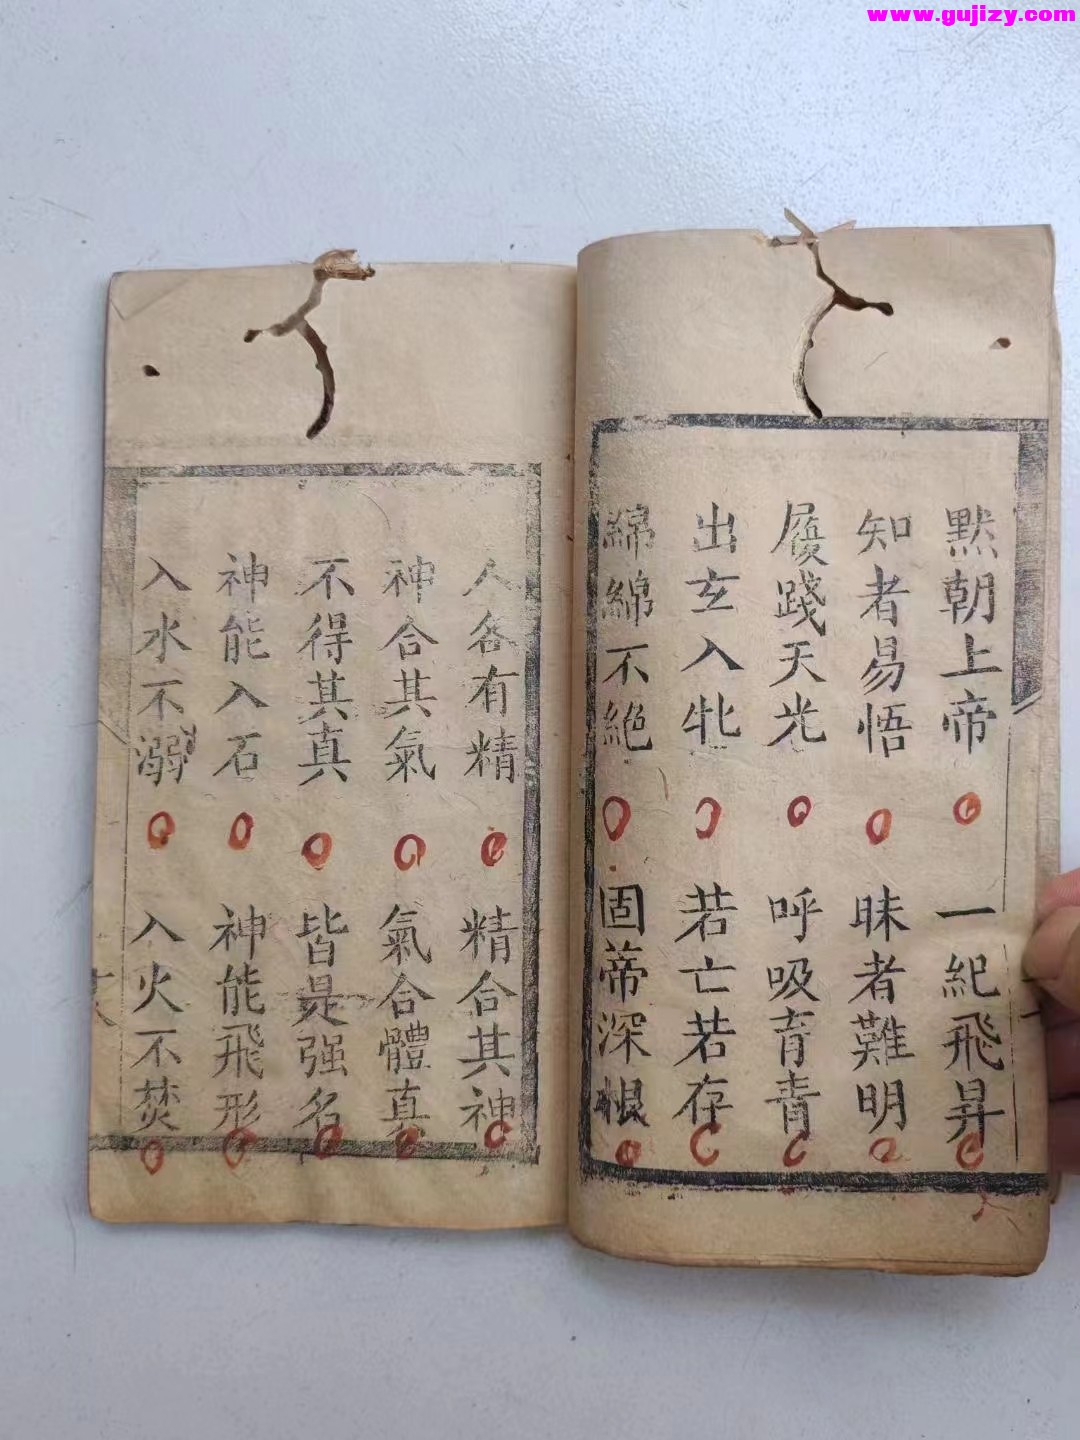 www.gujizy.com
默朝上帝 一紀飛昇
知者易悟 昧者難明
履踐天光 呼吸育青
出玄入牝 若亡若存
綿綿不絕 固蒂深根
人各有精 精合其神
神合其氣 氣合體真
不得其真 皆是强名
神能入石 神能飛形
入水不溺 入火不焚